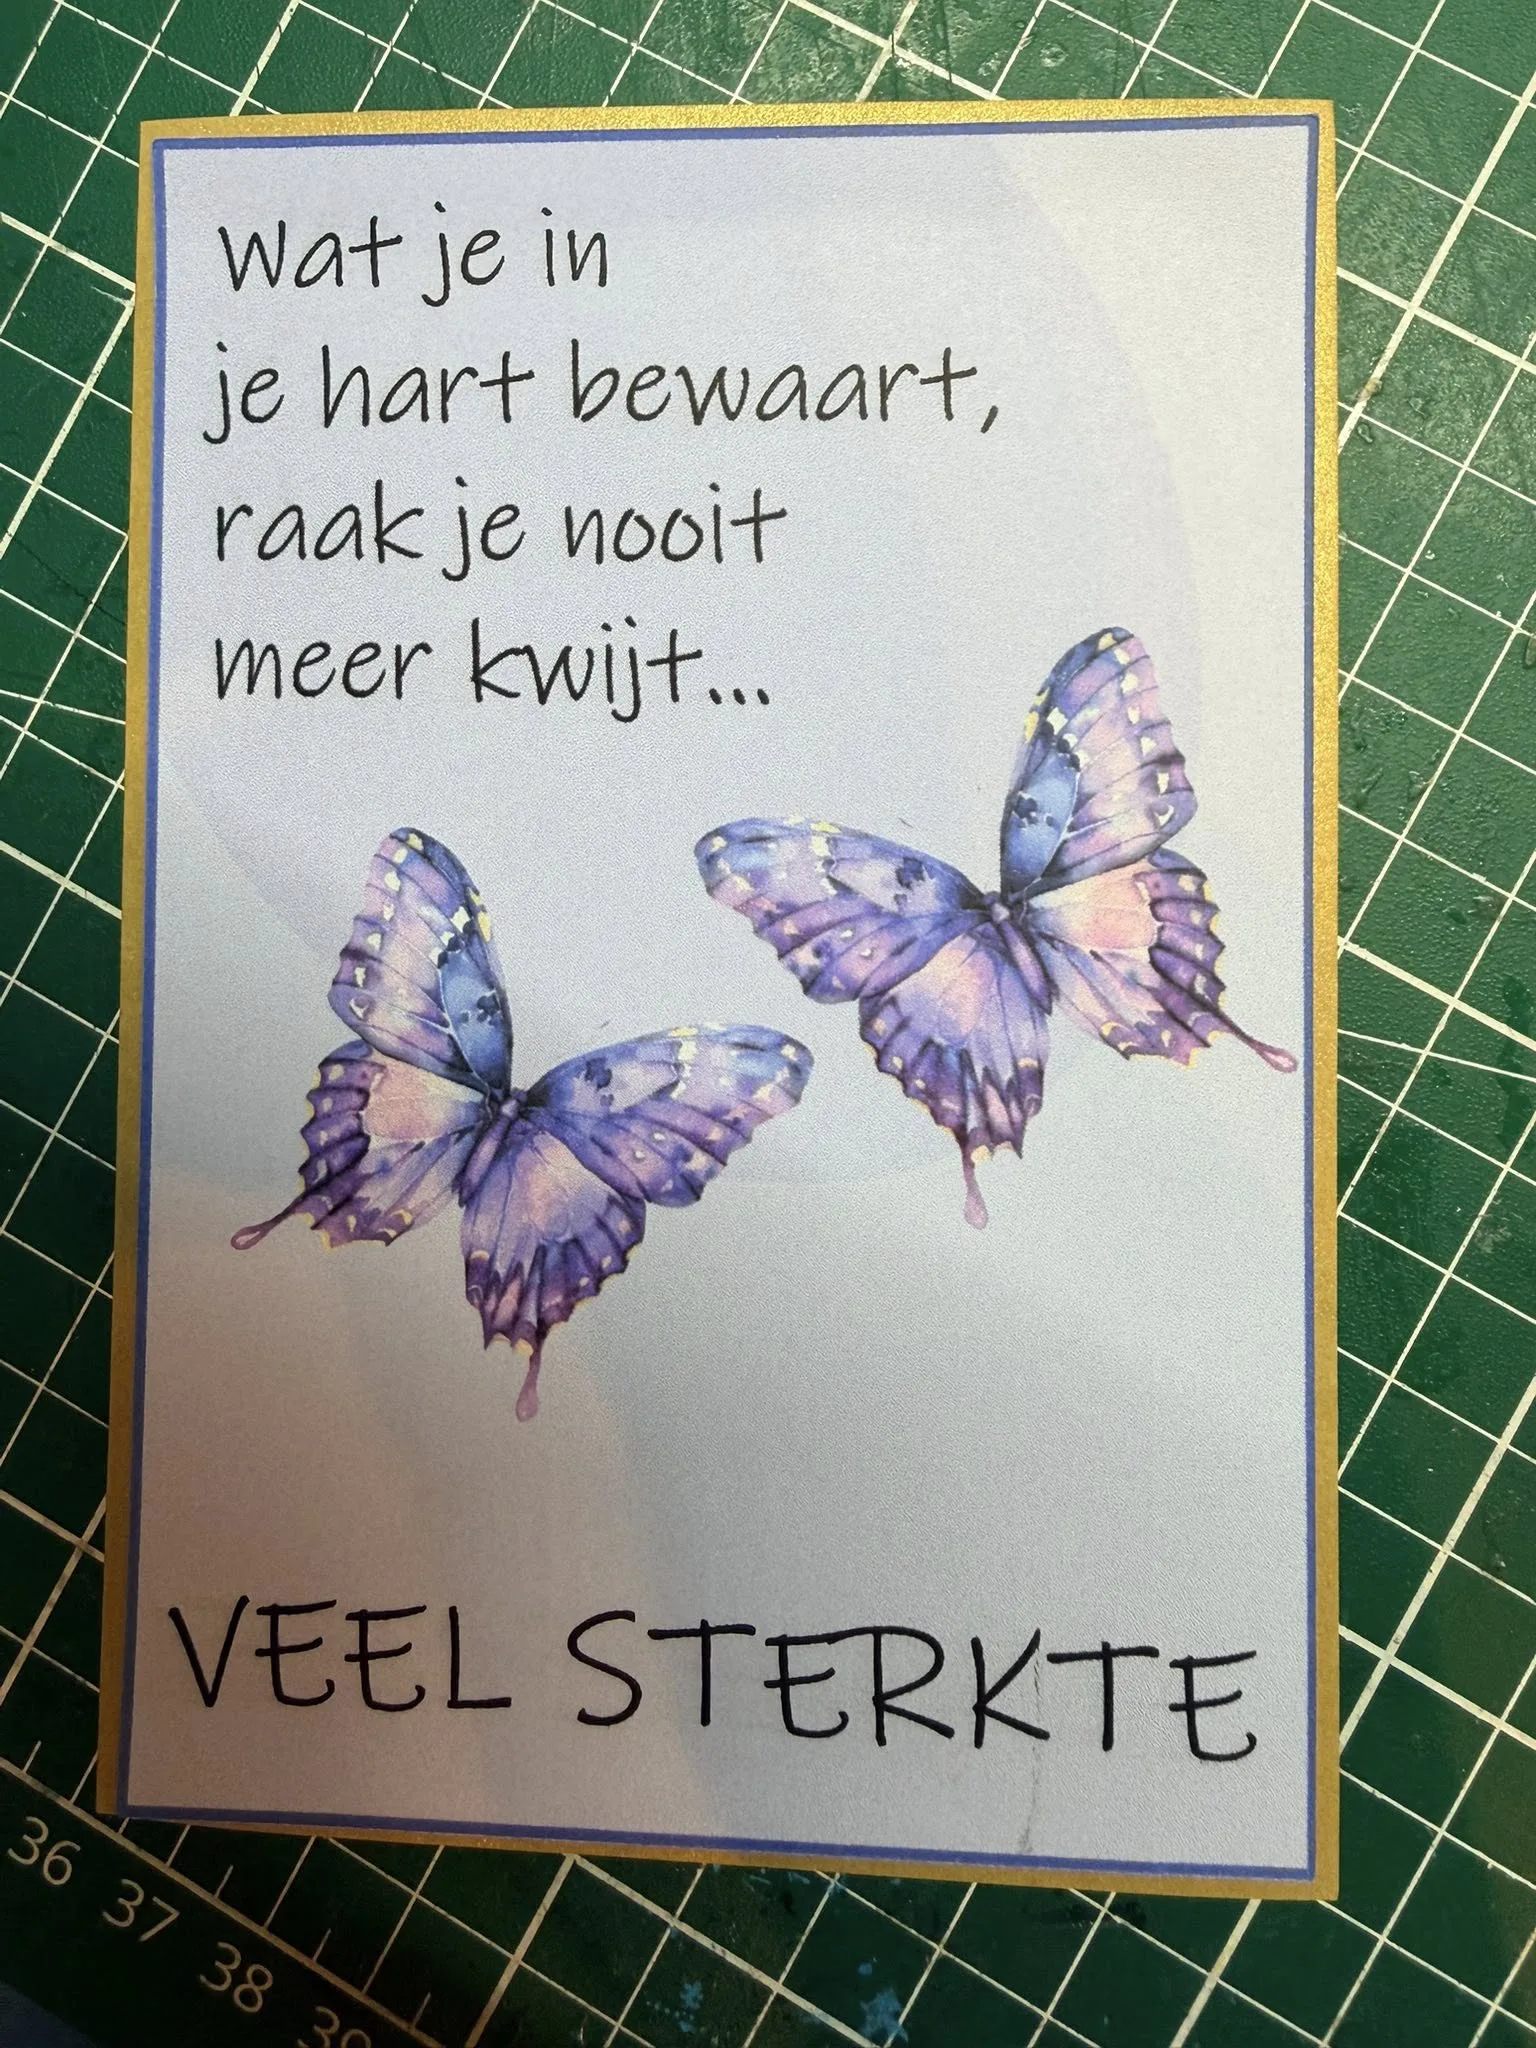 Wat je in
je hart bewaart,
raak je nooit
meer kwijt...
VEEL STERKTE
36
37
38
39